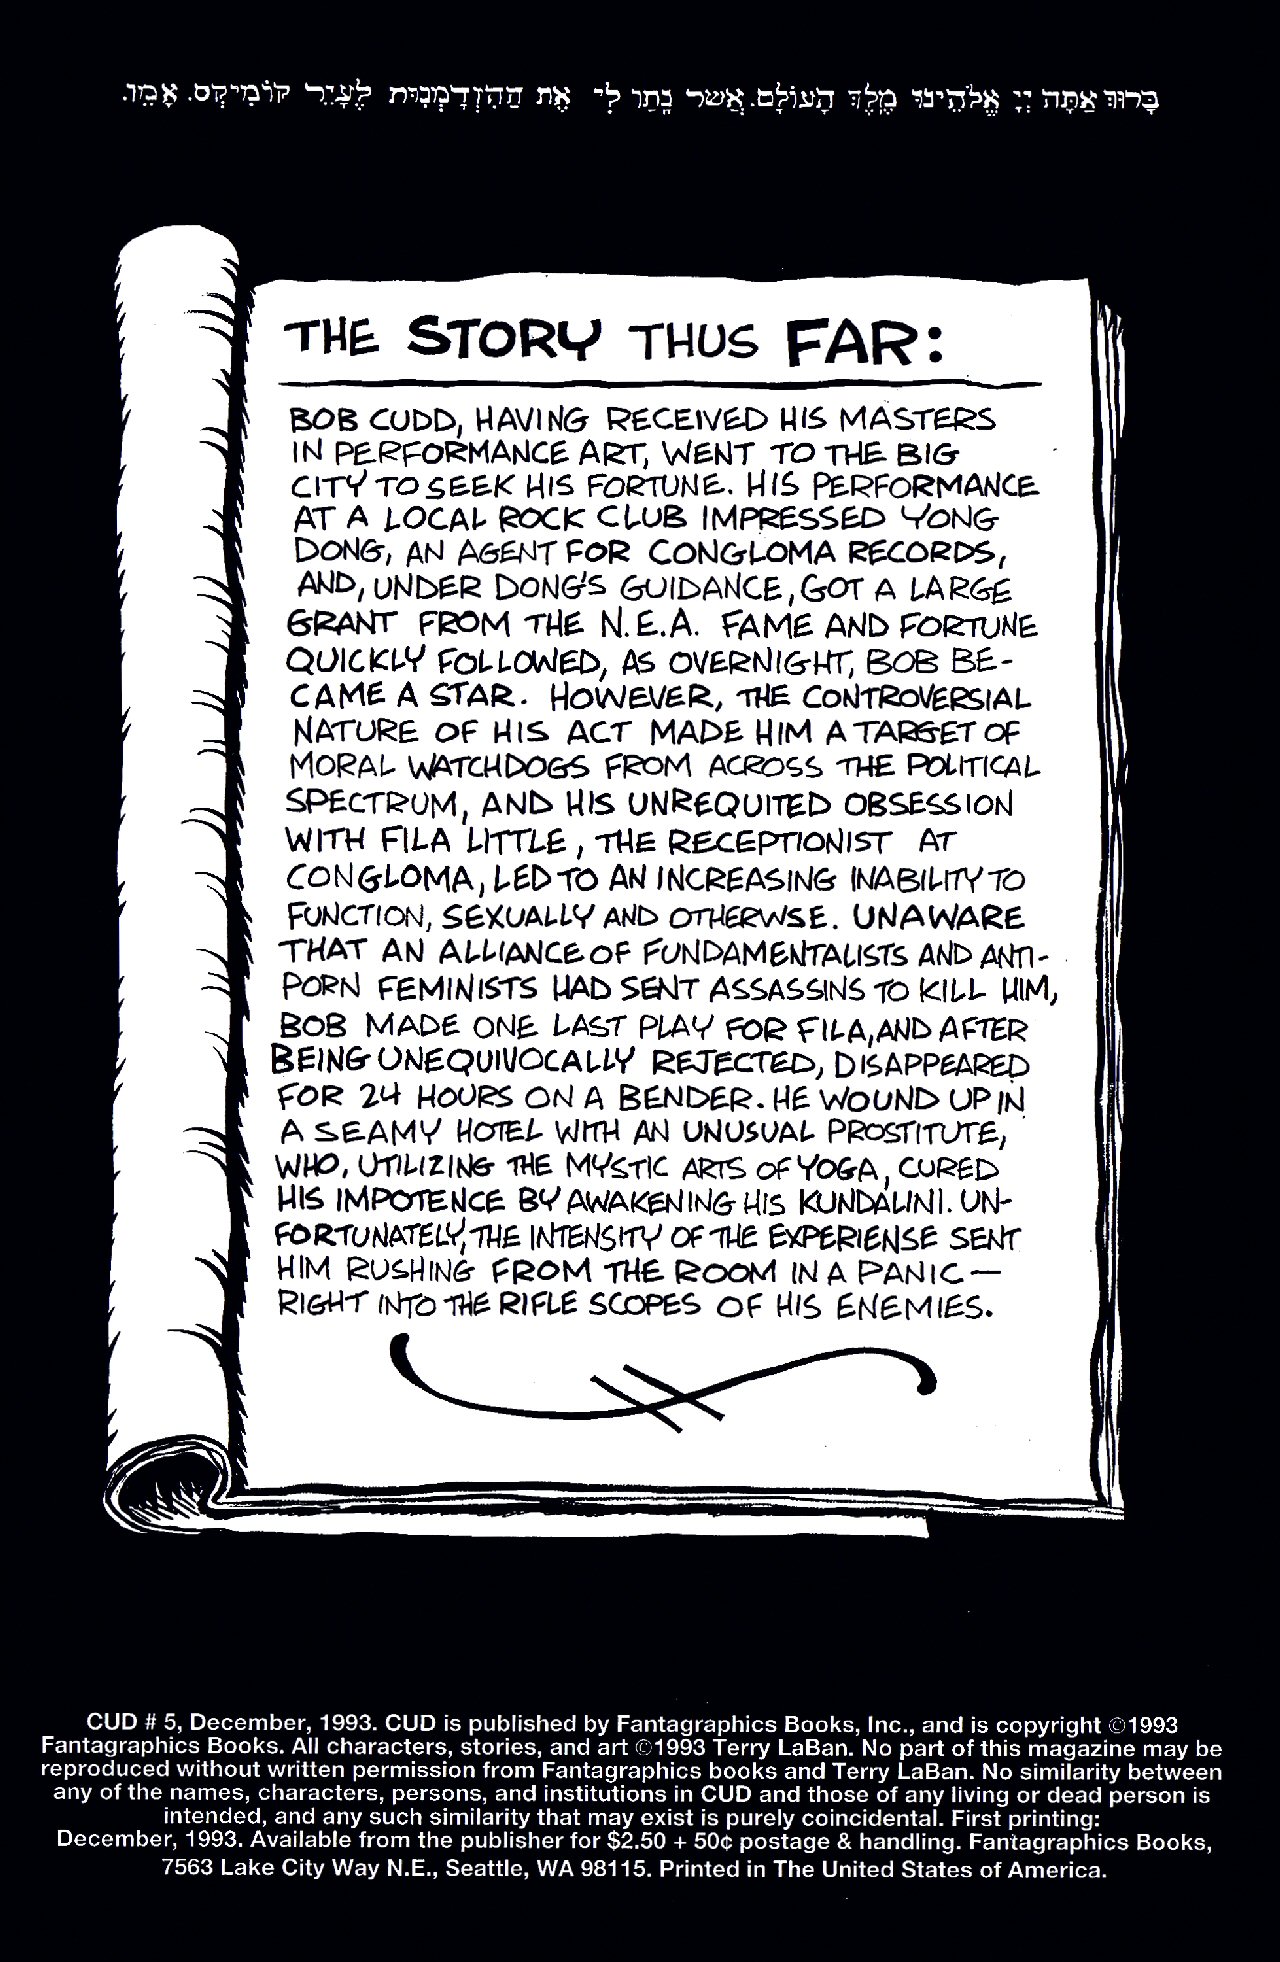 בָּרוּךְ אַתָּה יְיָ אֱלֹהֵינוּ מֶלֶךְ הָעוֹלָם. אֲשֶׁר נָתַן לִי אֶת הַהִזְדַמְנוּת לְצַיֵּר קוֹמִיקְס. אָמֵן.
THE STORY THUS FAR:
BOB CUDD, HAVING RECEIVED HIS MASTERS
IN PERFORMANCE ART, WENT TO THE BIG
CITY TO SEEK HIS FORTUNE. HIS PERFORMANCE
AT A LOCAL ROCK CLUB IMPRESSED YONG
DONG, AN AGENT FOR CONGLOMA RECORDS,
AND, UNDER DONG'S GUIDANCE, GOT A LARGE
GRANT FROM THE N.E.A. FAME AND FORTUNE
QUICKLY FOLLOWED, AS OVERNIGHT, BOB BE-
CAME A STAR. HOWEVER, THE CONTROVERSIAL
NATURE OF HIS ACT MADE HIM A TARGET OF
MORAL WATCHDOGS FROM ACROSS THE POLITICAL
SPECTRUM, AND HIS UNREQUITED OBSESSION
WITH FILA LITTLE, THE RECEPTIONIST AT
CONGLOMA, LED TO AN INCREASING INABILITY TO
FUNCTION, SEXUALLY AND OTHERWSE. UNAWARE
THAT AN ALLIANCE OF FUNDAMENTALISTS AND ANTI-
PORN FEMINISTS HAD SENT ASSASSINS TO KILL HIM,
BOB MADE ONE LAST PLAY FOR FILA, AND AFTER
BEING UNEQUIVOCALLY REJECTED, DISAPPEARED
FOR 24 HOURS ON A BENDER. HE WOUND UP IN
A SEAMY HOTEL WITH AN UNUSUAL PROSTITUTE,
WHO, UTILIZING THE MYSTIC ARTS OF YOGA, CURED
HIS IMPOTENCE BY AWAKENING HIS KUNDALINI. UN-
FORTUNATELY, THE INTENSITY OF THE EXPERIENSE SENT
HIM RUSHING FROM THE ROOM IN A PANIC—
RIGHT INTO THE RIFLE SCOPES OF HIS ENEMIES.
CUD # 5, December, 1993. CUD is published by Fantagraphics Books, Inc., and is copyright ©1993
Fantagraphics Books. All characters, stories, and art ©1993 Terry LaBan. No part of this magazine may be
reproduced without written permission from Fantagraphics books and Terry LaBan. No similarity between
any of the names, characters, persons, and institutions in CUD and those of any living or dead person is
intended, and any such similarity that may exist is purely coincidental. First printing:
December, 1993. Available from the publisher for $2.50 + 50¢ postage & handling. Fantagraphics Books,
7563 Lake City Way N.E., Seattle, WA 98115. Printed in The United States of America.